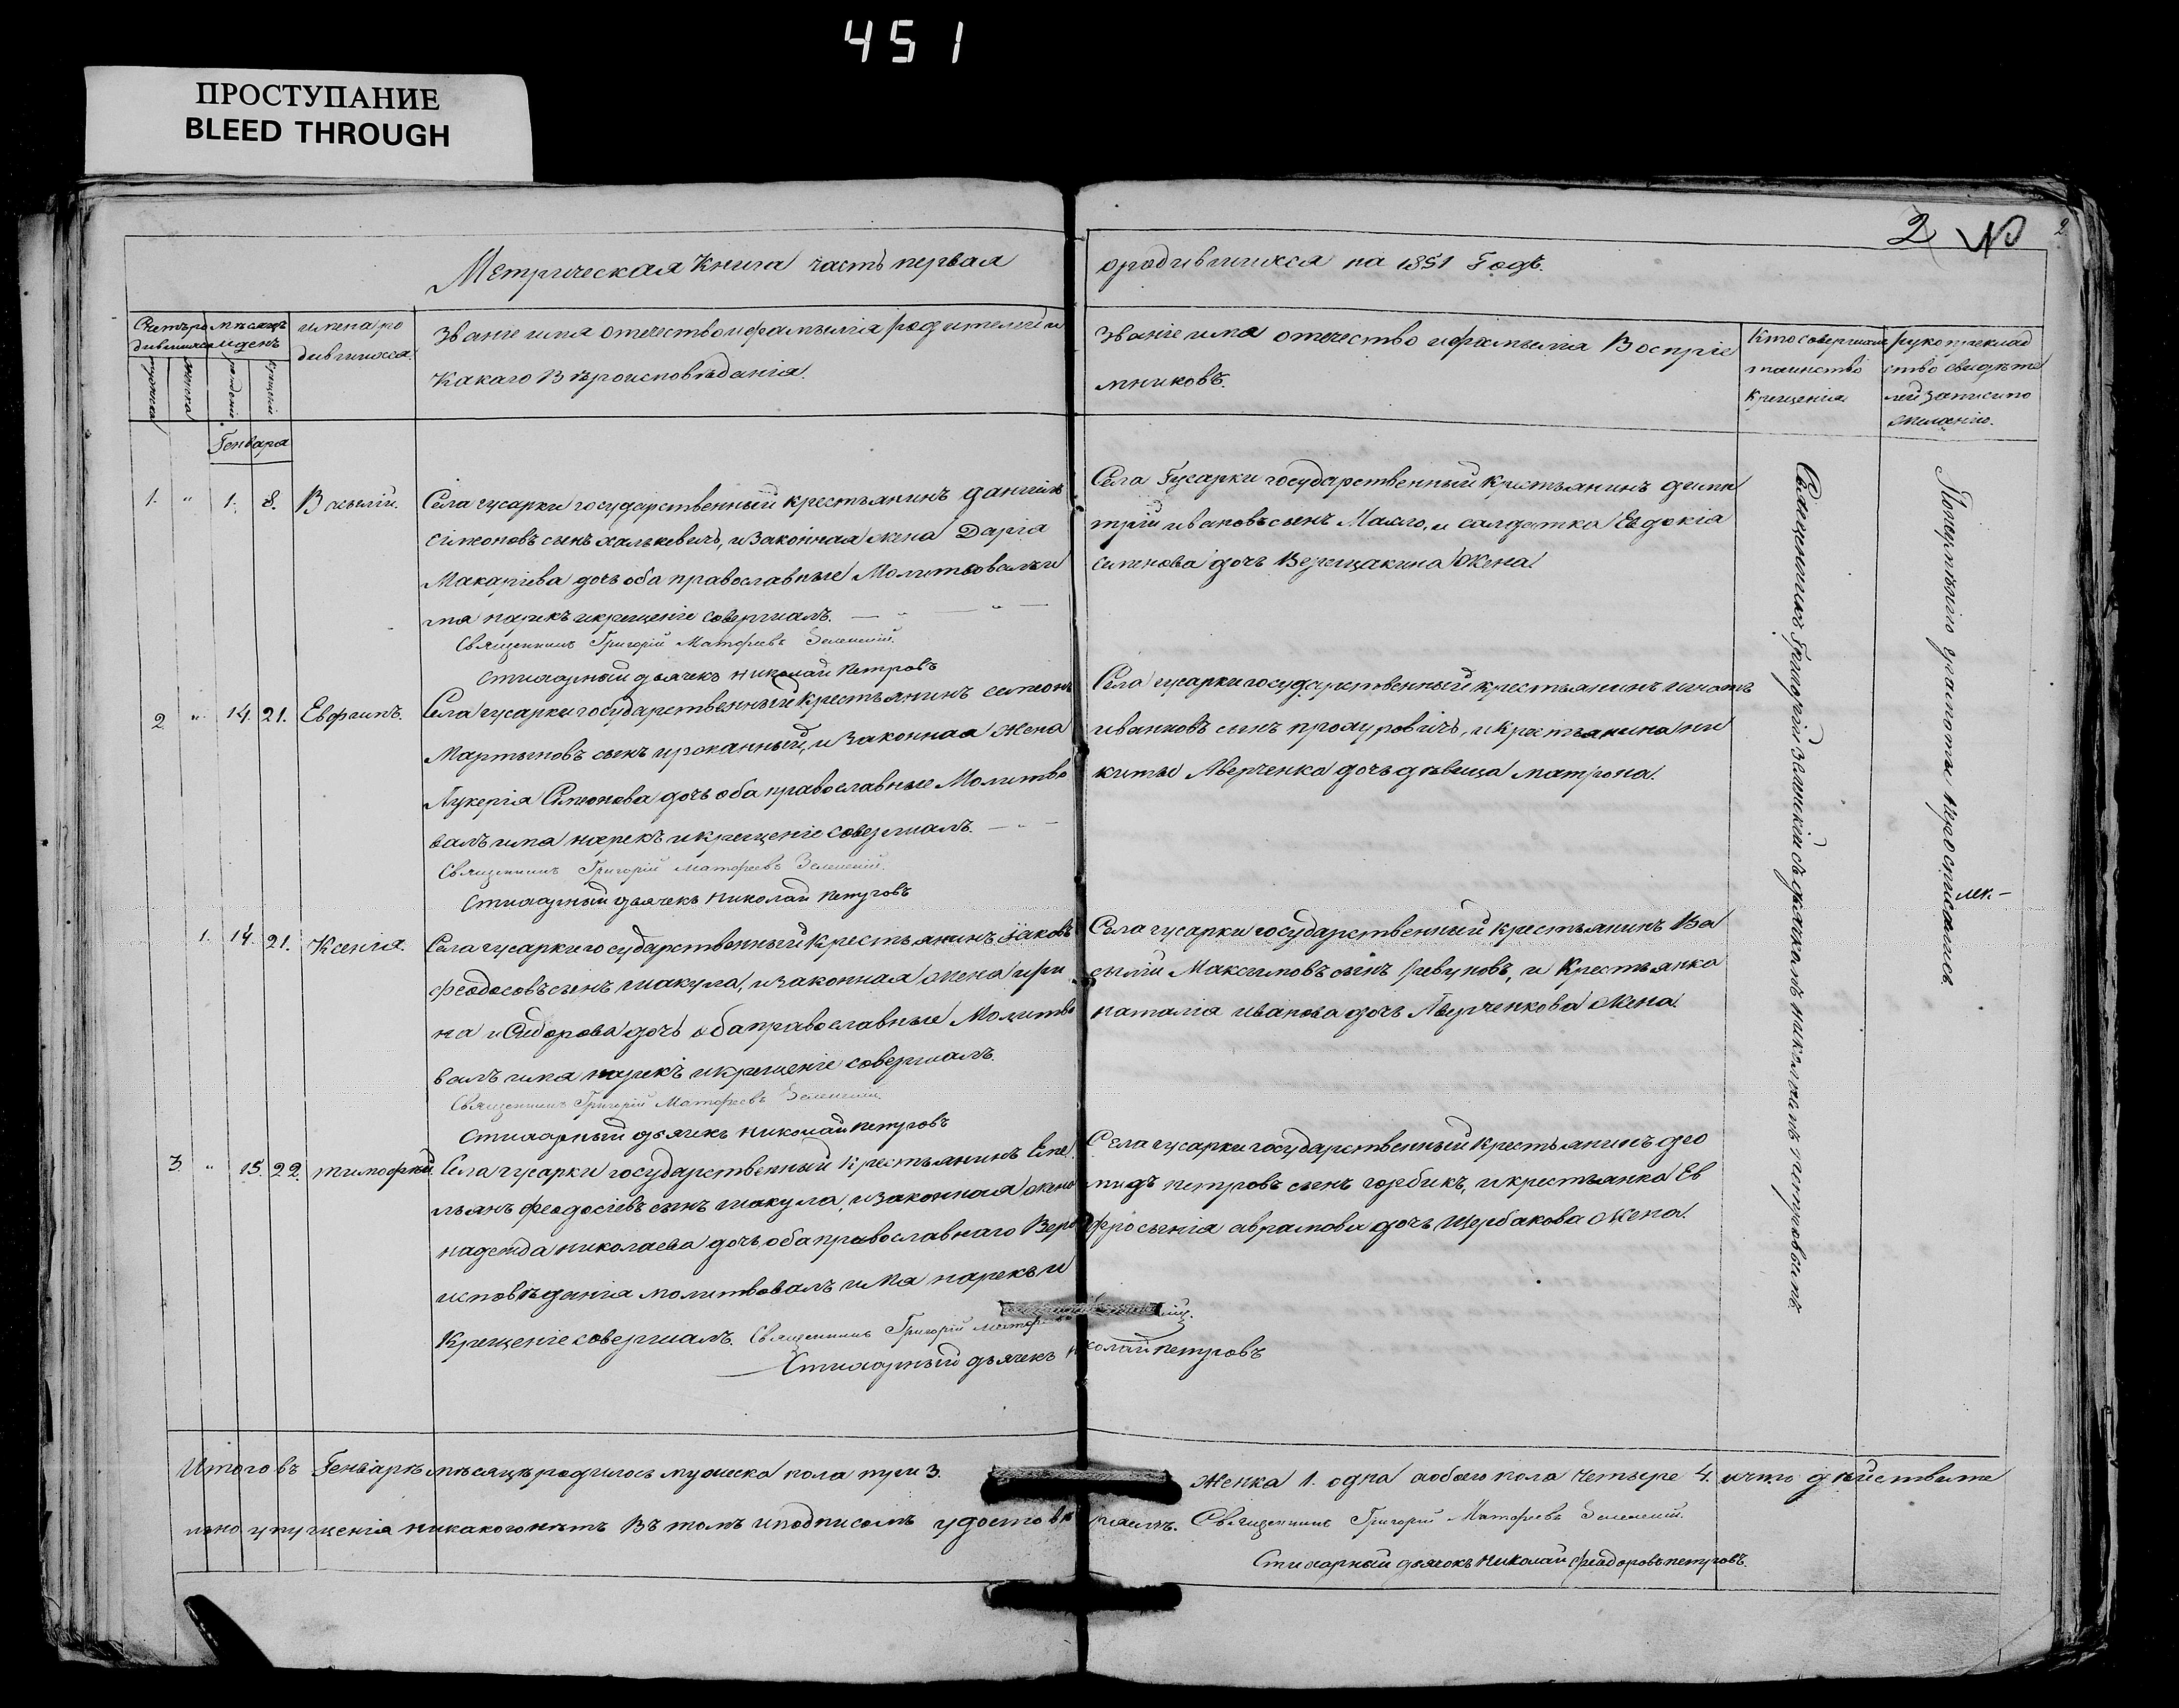 451
ПРОСТУПАНИЕ
BLEED THROUGH
2
2
Метрическая Книга часть первая
ородившихся на 1851 Годъ.
Счетъ родившихся
мужеска
женска
мѣсяцъ иденъ
рожденіе
крещеніе
имена родившихся
Званіе имя отечество ифамылія родителей и
Какаго Вѣроисповѣданія.
Званіе имя отечество ифамылія Воспріе
мниковъ.
Кто совершалъ
таинство
Крещенія
рукоприклад
ство свидѣте
лей записи по
желанію.
Генваря
1. " 1. 8. Васылій.
Села гусарки государственный крестьянинъ даніилъ
Сімеоновъ сынъ халькевичъ, и законная жена Дарія
Макаріева дочь оба православные Молитвовалъ и
мя нарекъ и крещеніе совершалъ.
Священникъ Григорій Матфеевъ Зеленскій.
Стихарный дьячекъ николай Петровъ
Села Гусарки государственный крестьянинъ дими
трій ивановъ сынъ Малго, и салдатка Евдокіа
симонова дочь Верещакина Жена
2 " 14. 21. Евфимъ.
Села гусарки государственный Крестьянинъ симеонъ
Мартыновъ сынъ ироканный, и Законная Жена
Лукерія Сімеонова дочь оба православные Молитво
валъ имя нарекъ и крещеніе совершалъ.
Священникъ Григорій Матфеевъ Зеленскій.
Стихарный дьячекъ Николай Петровъ
Села гусарки государственный крестьянинъ игнатъ
иванковъ сынъ прокуровичъ, и Крестьянина ни
киты Аверченка дочь дѣвица матрона.
1. 14. 21. Ксенія.
Села гусарки государственный Крестьянинъ Іаковъ
феодосовъ сынъ шакула, и законная жена ири
на иСидорова дочь оба православные Молитво
валъ имя нарекъ и крещеніе совершалъ.
Священникъ Григорій Матфеевъ Зеленскій.
Стихарный дьячекъ Николай петровъ
Села гусарки государственный крестьянинъ Ва
сылій Максимовъ сынъ ревуновъ, и Крестьянка
наталія иванова дочь Аверченкова Жена.
3. " 15. 22. тимофѣй.
Села гусарки государственный крестьянинъ Еме
льянъ феодосіевъ сынъ шакула, и законная жена
надежда николаева дочь оба православнаго Веро
исповѣданія молитвовалъ имя нарекъ и
Крещеніе совершалъ. Священникъ Григорій
Стихарный дьячекъ николай петровъ
Села гусарки государственный крестьянинъ део
мидъ петровъ сынъ горбикъ, и крестьянка Ев
фросынія аврамова дочь Щербакова Жена.
Священникъ Григорій Зеленскій съ дьячкомъ николаемъ петровымъ.
лек-
Итого въ Генварѣ мѣсяцѣ родилось мужеска пола три 3.
Женка 1. одна аобоего пола четыре 4. ичто дѣйствите
льно упущенія никакого нѣтъ Въ томъ иподписомъ удостовѣ
ряемъ. Священникъ Григорій Матфеевъ Зеленскій.
Стихарный дьячокъ Николай феодоровъ петровъ.